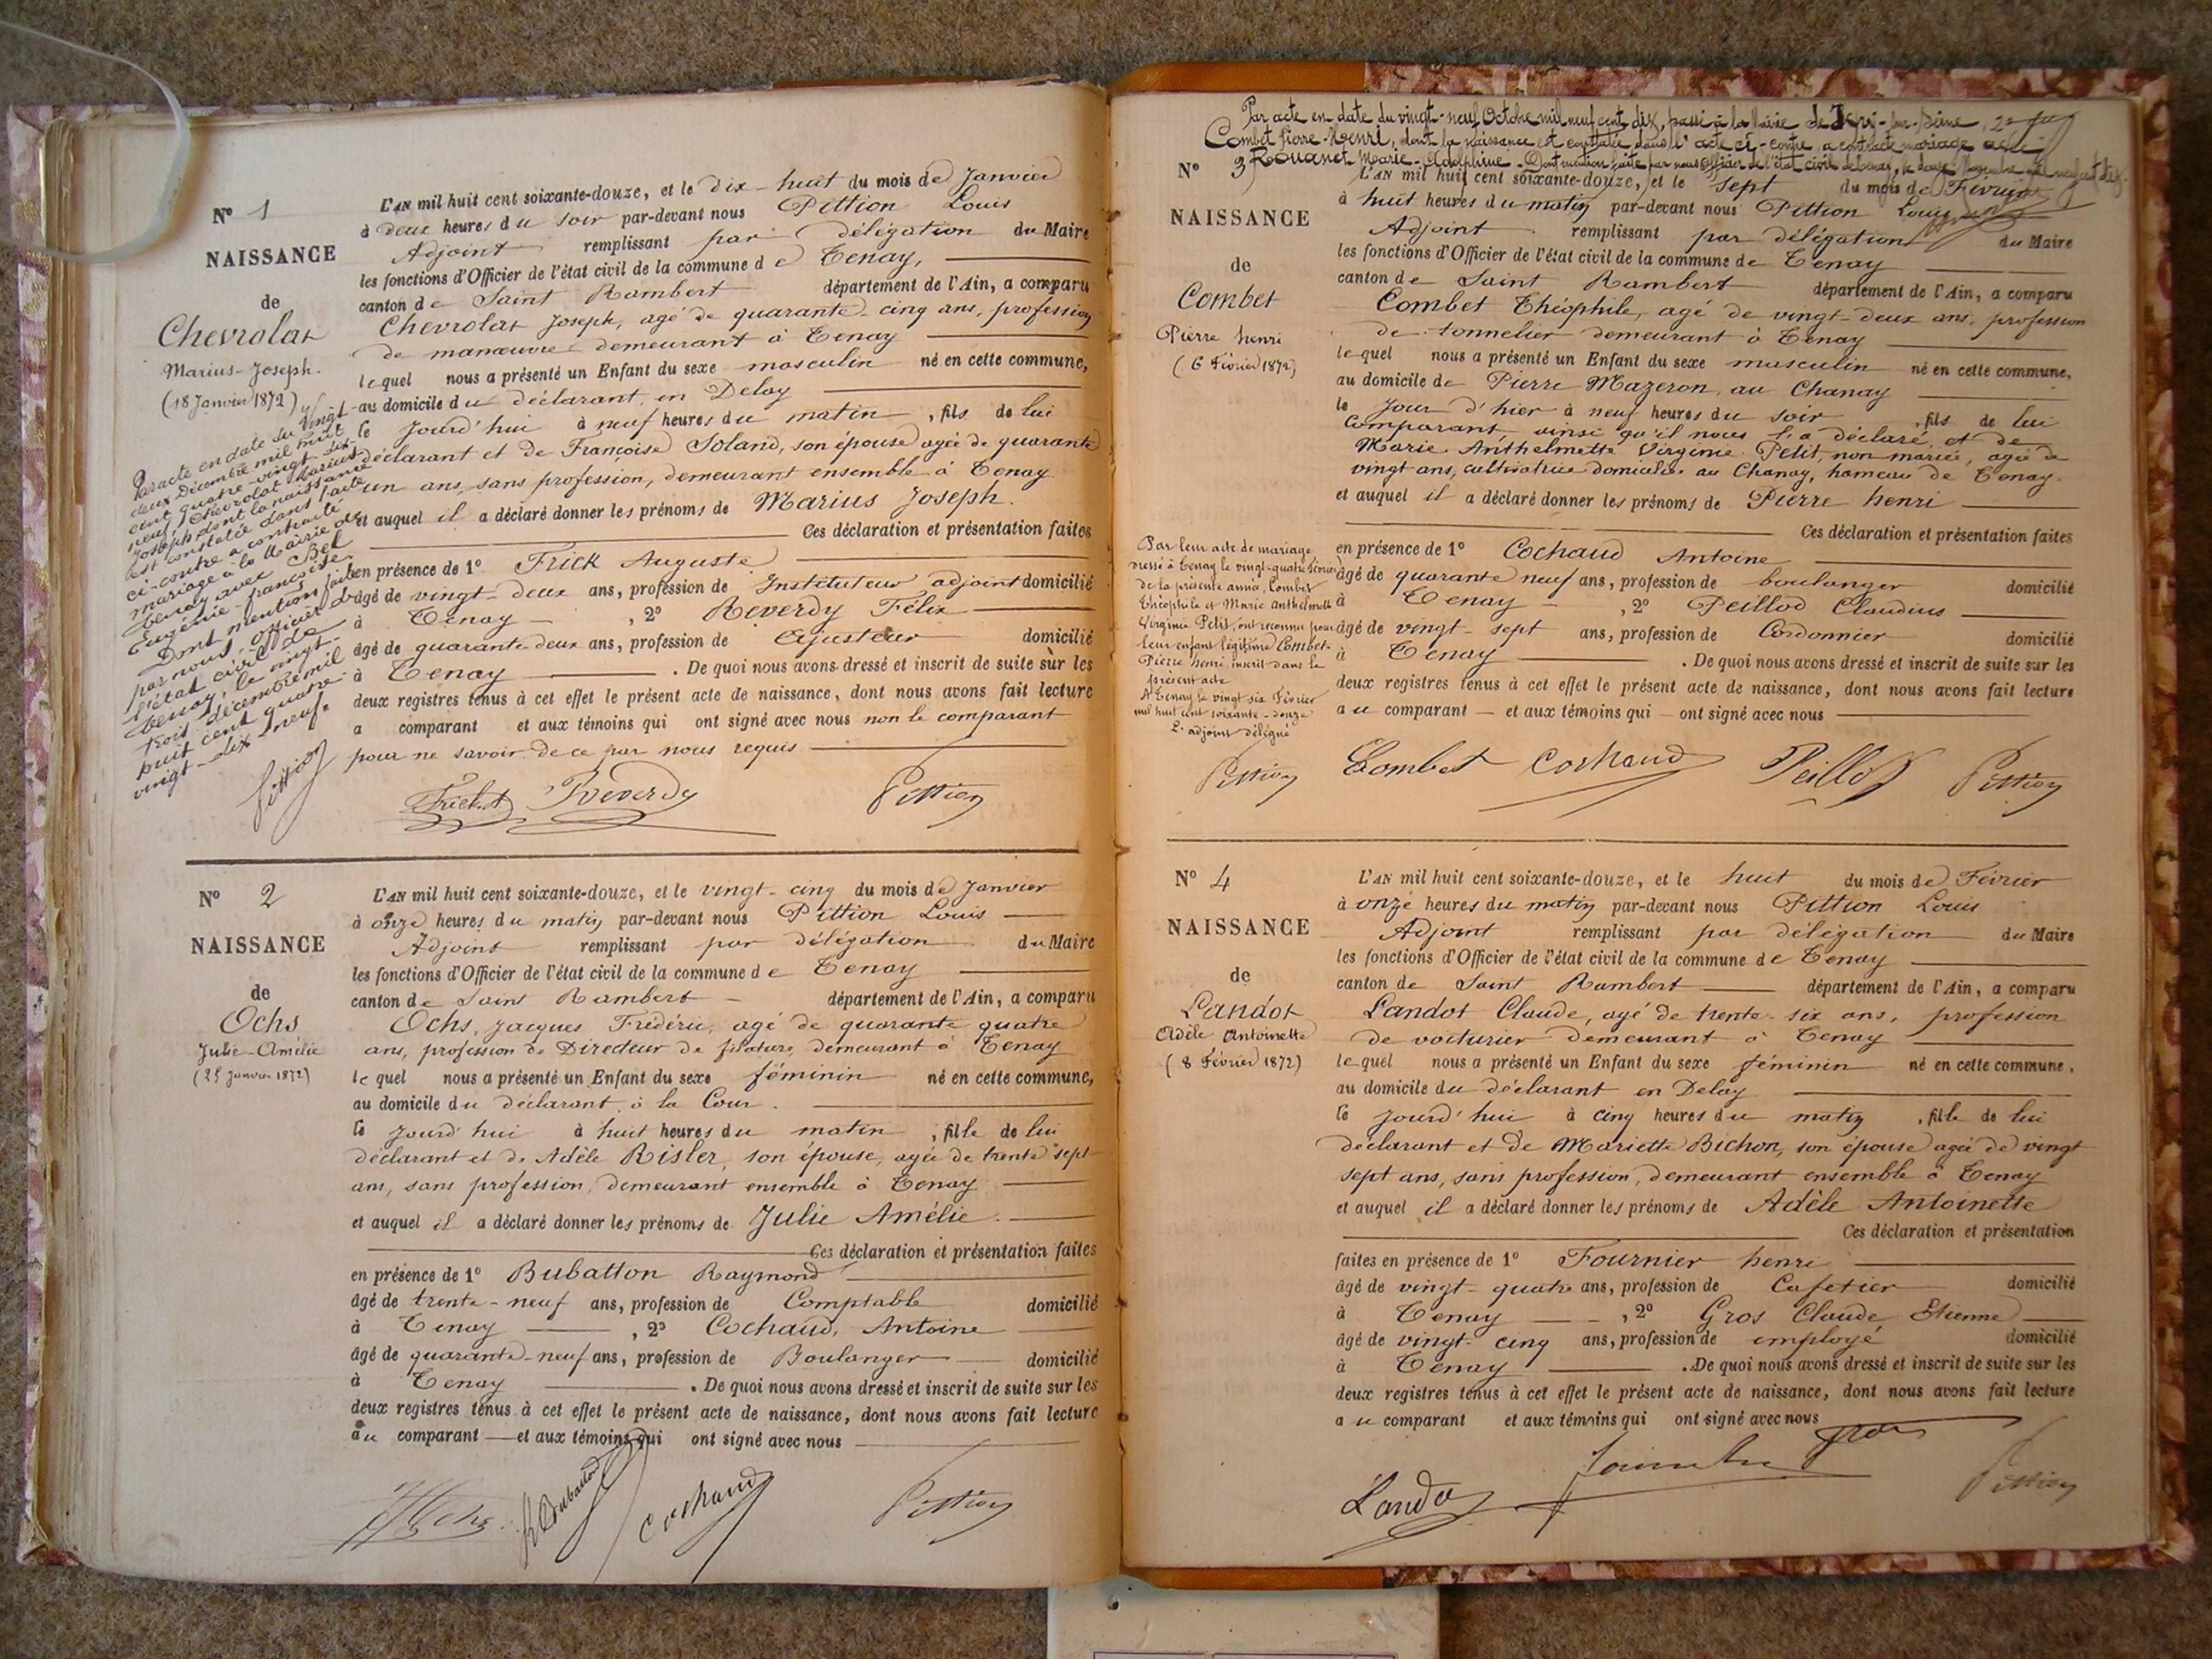 N° 1
NAISSANCE
de
Chevrolat
Marius-Joseph.
(18 Janvier 1872)
Par acte en date du vingt-
deux Décembre mil huit
cent quatre-vingt-dix-
neuf, Chevrolat Marius-
Joseph, dont la naissance
est constatée dans l'acte
ci-contre a contracté
mariage à la Mairie de
Tenay avec Bel
Eugénie-françoise.
Dont mention faite
par nous, officier de
l'état civil de
Tenay, le vingt-
trois décembre mil
huit cent quatre-
vingt-dix-neuf.
Pittion
L'AN mil huit cent soixante-douze, et le dix-huit du mois de Janvier
à deux heures du soir par-devant nous Pittion Louis
Adjoint remplissant par délégation du Maire
les fonctions d'Officier de l'état civil de la commune de Tenay,
canton de Saint Rambert département de l'Ain, a comparu
Chevrolat Joseph, agé de quarante-cinq ans, profession
de manœuvre demeurant à Tenay
lequel nous a présenté un Enfant du sexe masculin né en cette commune,
au domicile du déclarant, en Delay
le jourd'hui à neuf heures du matin, fils de lui
déclarant et de Françoise Soland, son épouse agée de quarante
un ans, sans profession, demeurant ensemble à Tenay
et auquel il a déclaré donner les prénoms de Marius Joseph.
Ces déclaration et présentation faites
en présence de 1° Frick Auguste
âgé de vingt-deux ans, profession de Instituteur adjoint domicilié
à Tenay, 2° Reverdy Félix
âgé de quarante deux ans, profession de Ajusteur domicilié
à Tenay. De quoi nous avons dressé et inscrit de suite sur les
deux registres tenus à cet effet le présent acte de naissance, dont nous avons fait lecture
a comparant et aux témoins qui ont signé avec nous non le comparant
pour ne savoir de ce par nous requis
Frick A Reverdy Pittion
N° 2
NAISSANCE
de
Ochs
Julie-Amélie
(25 Janvier 1872)
L'AN mil huit cent soixante-douze, et le vingt-cinq du mois de Janvier
à onze heures du matin par-devant nous Pittion Louis
Adjoint remplissant par délégation du Maire
les fonctions d'Officier de l'état civil de la commune de Tenay
canton de Saint Rambert département de l'Ain, a comparu
Ochs, Jacques Frédéric, agé de quarante quatre
ans, profession de Directeur de filature, demeurant à Tenay
lequel nous a présenté un Enfant du sexe féminin né en cette commune,
au domicile du déclarant, à la Cour.
le jourd'hui à huit heures du matin, fille de lui
déclarant et de Adèle Risler, son épouse, agée de trente sept
ans, sans profession, demeurant ensemble à Tenay
et auquel il a déclaré donner les prénoms de Julie Amélie.
Ces déclaration et présentation faites
en présence de 1° Bubatton Raymond
âgé de trente-neuf ans, profession de Comptable domicilié
à Tenay, 2° Cochaud, Antoine
âgé de quarante-neuf ans, profession de Boulanger domicilié
à Tenay. De quoi nous avons dressé et inscrit de suite sur les
deux registres tenus à cet effet le présent acte de naissance, dont nous avons fait lecture
au comparant et aux témoins qui ont signé avec nous
Ochs R Bubatton Cochaud Pittion
Par acte en date du vingt-neuf Octobre mil neuf cent dix, passé à la Mairie de Ivry-sur-Seine,
Combet Pierre-Henri, dont la naissance est constatée dans l'acte ci-contre, a contracté mariage avec
Rouanet Marie-Adolphine. Dont mention faite par nous officier de l'état civil de Tenay, le douze Novembre mil neuf cent dix.
N° 3
NAISSANCE
de
Combet
Pierre henri
(6 Février 1872)
Par leur acte de mariage
dressé à Tenay le vingt-quatre février
de la présente année, Combet
Théophile et Marie Anthelmette
Virginie Petit, ont reconnu pour
leur enfant légitime Combet
Pierre henri, inscrit dans le
présent acte
A Tenay le vingt six Février
mil huit cent soixante-douze
L'adjoint délégué
Pittion
L'AN mil huit cent soixante-douze, et le sept du mois de Février
à huit heures du matin par-devant nous Pittion Louis
Adjoint remplissant par délégation du Maire
les fonctions d'Officier de l'état civil de la commune de Tenay
canton de Saint Rambert département de l'Ain, a comparu
Combet Théophile, agé de vingt-deux ans, profession
de tonnelier demeurant à Tenay
lequel nous a présenté un Enfant du sexe masculin né en cette commune,
au domicile de Pierre Mazeron, au Chanay
le jour d'hier à neuf heures du soir, fils de lui
comparant ainsi qu'il nous l'a déclaré, et de
Marie Anthelmette Virginie Petit, non mariée, agée de
vingt ans, cultivatrice domiciliée au Chanay, hameau de Tenay.
et auquel il a déclaré donner les prénoms de Pierre henri
Ces déclaration et présentation faites
en présence de 1° Cochaud Antoine
âgé de quarante neuf ans, profession de boulanger domicilié
à Tenay, 2° Peillod Claudius
âgé de vingt-sept ans, profession de Cordonnier domicilié
à Tenay. De quoi nous avons dressé et inscrit de suite sur les
deux registres tenus à cet effet le présent acte de naissance, dont nous avons fait lecture
au comparant et aux témoins qui ont signé avec nous
Combet Cochaud Peillod Pittion
N° 4
NAISSANCE
de
Landot
Adèle Antoinette
(8 Février 1872)
L'AN mil huit cent soixante-douze, et le huit du mois de Février
à onze heures du matin par-devant nous Pittion Louis
Adjoint remplissant par délégation du Maire
les fonctions d'Officier de l'état civil de la commune de Tenay
canton de Saint Rambert département de l'Ain, a comparu
Landot Claude, agé de trente-six ans, profession
de voiturier demeurant à Tenay
lequel nous a présenté un Enfant du sexe féminin né en cette commune,
au domicile du déclarant en Delay
le jourd'hui à cinq heures du matin, fille de lui
déclarant et de Mariette Bichon, son épouse agée de vingt
sept ans, sans profession, demeurant ensemble à Tenay
et auquel il a déclaré donner les prénoms de Adèle Antoinette
Ces déclaration et présentation
faites en présence de 1° Fournier henri
âgé de vingt-quatre ans, profession de Cafetier domicilié
à Tenay, 2° Gros Claude Etienne
âgé de vingt-cinq ans, profession de employé domicilié
à Tenay. De quoi nous avons dressé et inscrit de suite sur les
deux registres tenus à cet effet le présent acte de naissance, dont nous avons fait lecture
au comparant et aux témoins qui ont signé avec nous
Landot Fournier Gros Pittion